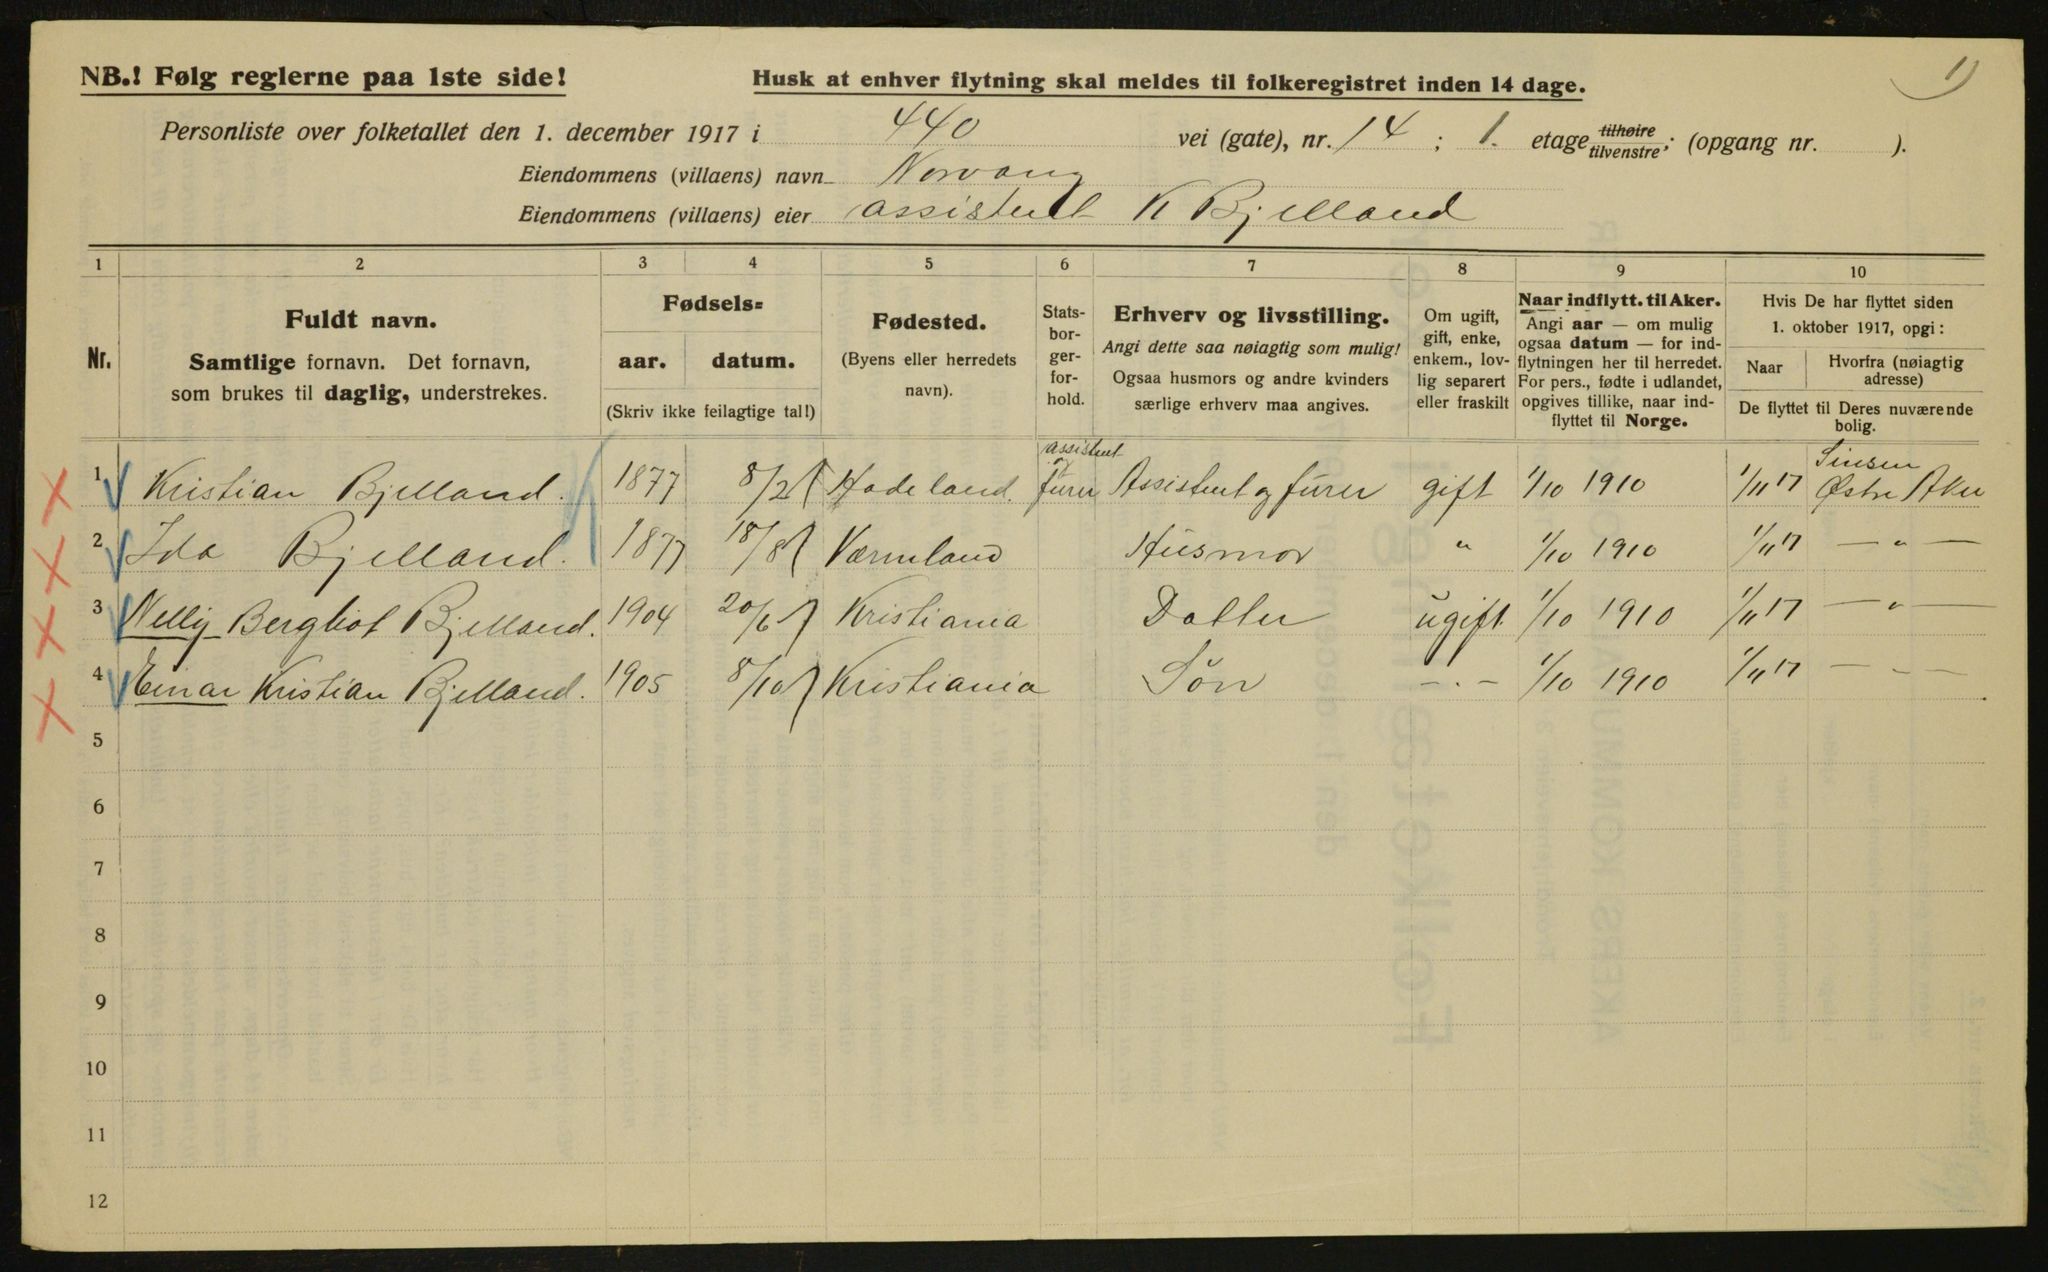 NB.! Følg reglerne paa 1ste side!
Husk at enhver flytning skal meldes til folkeregistret inden 14 dage.
1)
Personliste over folketallet den 1. december 1917 i 440 vei (gate), nr. 14 ; 1. etage tilhøire tilvenstre; (opgang nr. ).
Eiendommens (villaens) navn Norvang
Eiendommens (villaens) eier assistent K Bjelland
1 2 3 4 5 6 7 8 9 10
Nr.
Fuldt navn.
Samtlige fornavn. Det fornavn,
som brukes til daglig, understrekes.
Fødsels-
aar. datum.
(Skriv ikke feilagtige tal!)
Fødested.
(Byens eller herredets
navn).
Stats-
bor-
ger-
for-
hold.
Erhverv og livsstilling.
Angi dette saa nøiagtig som mulig!
Ogsaa husmors og andre kvinders
særlige erhverv maa angives.
Om ugift,
gift, enke,
enkem., lov-
lig separert
eller fraskilt
Naar indflytt. til Aker.
Angi aar — om mulig
ogsaa datum — for ind-
flytningen her til herredet.
For pers., fødte i udlandet,
opgives tillike, naar ind-
flyttet til Norge.
Hvis De har flyttet siden
1. oktober 1917, opgi:
Naar
Hvorfra (nøiagtig
adresse)
De flyttet til Deres nuværende
bolig.
1 Kristian Bjelland. 1877 8/2 Hadeland. assistent og furer Assistent og furer gift 1/10 1910 1/11 17 Sinsen Østre Aker
2 Ida Bjelland. 1877 18/8 Værmland Husmor " 1/10 1910 1/11 17 — " —
3 Nelly Bergliot Bjelland. 1904 20/6 Kristiania Datter ugift 1/10 1910 1/11 17 — " —
4 Einar Kristian Bjelland. 1905 8/10 Kristiania Sön — " — 1/10 1910 1/11 17 — " —
5
6
7
8
9
10
11
12